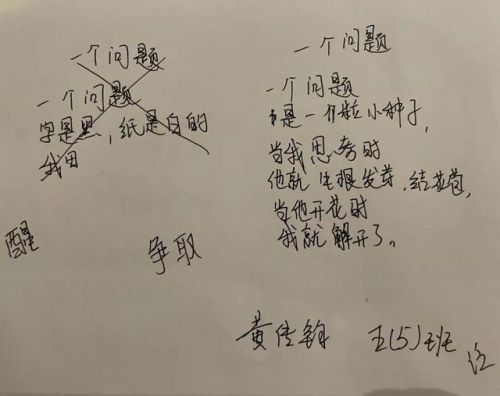 一个问题
一个问题
字是黑，纸是白的
我用
一个问题
一个问题
是一个粒小种子，
当我思考时
他就生根发芽，结花苞，
当他开花时
我就解开了。
醒
争取
黄佳钧 五(5)班